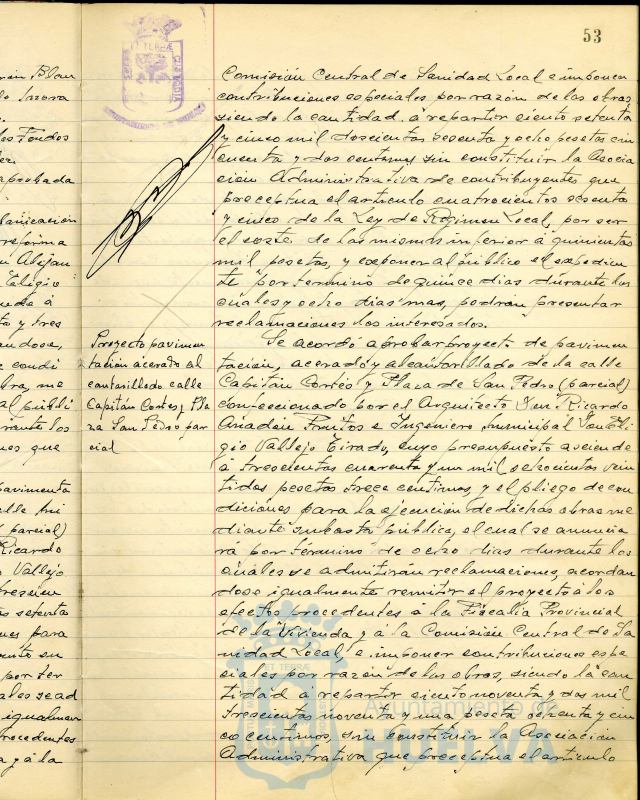 53
Comisión Central de Sanidad Local e imponer
contribuciones especiales por razón de las obras
siendo la cantidad á repartir ciento setenta
y cinco mil doscientas sesenta y ocho pesetas cin
cuenta y dos centimos sin constituir la Asocia
ción Administrativa de contribuyentes que
preceptua el artículo cuatrocientos sesenta
y cinco de la Ley de Régimen Local, por ser
el coste de las mismas inferior á quinientas
mil pesetas, y exponer al público el expedien
te por termino de quince dias durante los
cuales y ocho dias mas, podrán presentar
reclamaciones los interesados.
Proyecto pavimen
tación acerado al
cantarillado calle
Capitán Cortes y Pla
za San Pedro par
cial
Se acordó aprobar proyecto de pavimen
tación, acerado y alcantarillado de la calle
Capitán Cortés y Plaza de San Pedro (parcial)
confeccionado por el Arquitecto Don Ricardo
Anadon Frutos e Ingeniero municipal Don Eli
gio Vallejo Tirado, cuyo presupuesto asciende
á trescientas cuarenta y un mil setecientas vein
tidos pesetas trece centimos, y el pliego de con
diciones para la ejecución de dichas obras me
diante subasta pública, el cual se anuncia
ra por término de ocho dias durante los
cuales se admitirán reclamaciones, acordan
dose igualmente remitir el proyecto á los
efectos procedentes á la Fiscalia Provincial
de la Vivienda y á la Comisión Central de Sa
nidad Local e imponer contribuciones espe
ciales por razón de las obras, siendo la can
tidad á repartir ciento noventa y dos mil
trescientas noventa y una peseta ochenta y cin
co centimos, sin constituir la Asociación
Administrativa que preceptua el artículo
Ayuntamiento de
HUELVA